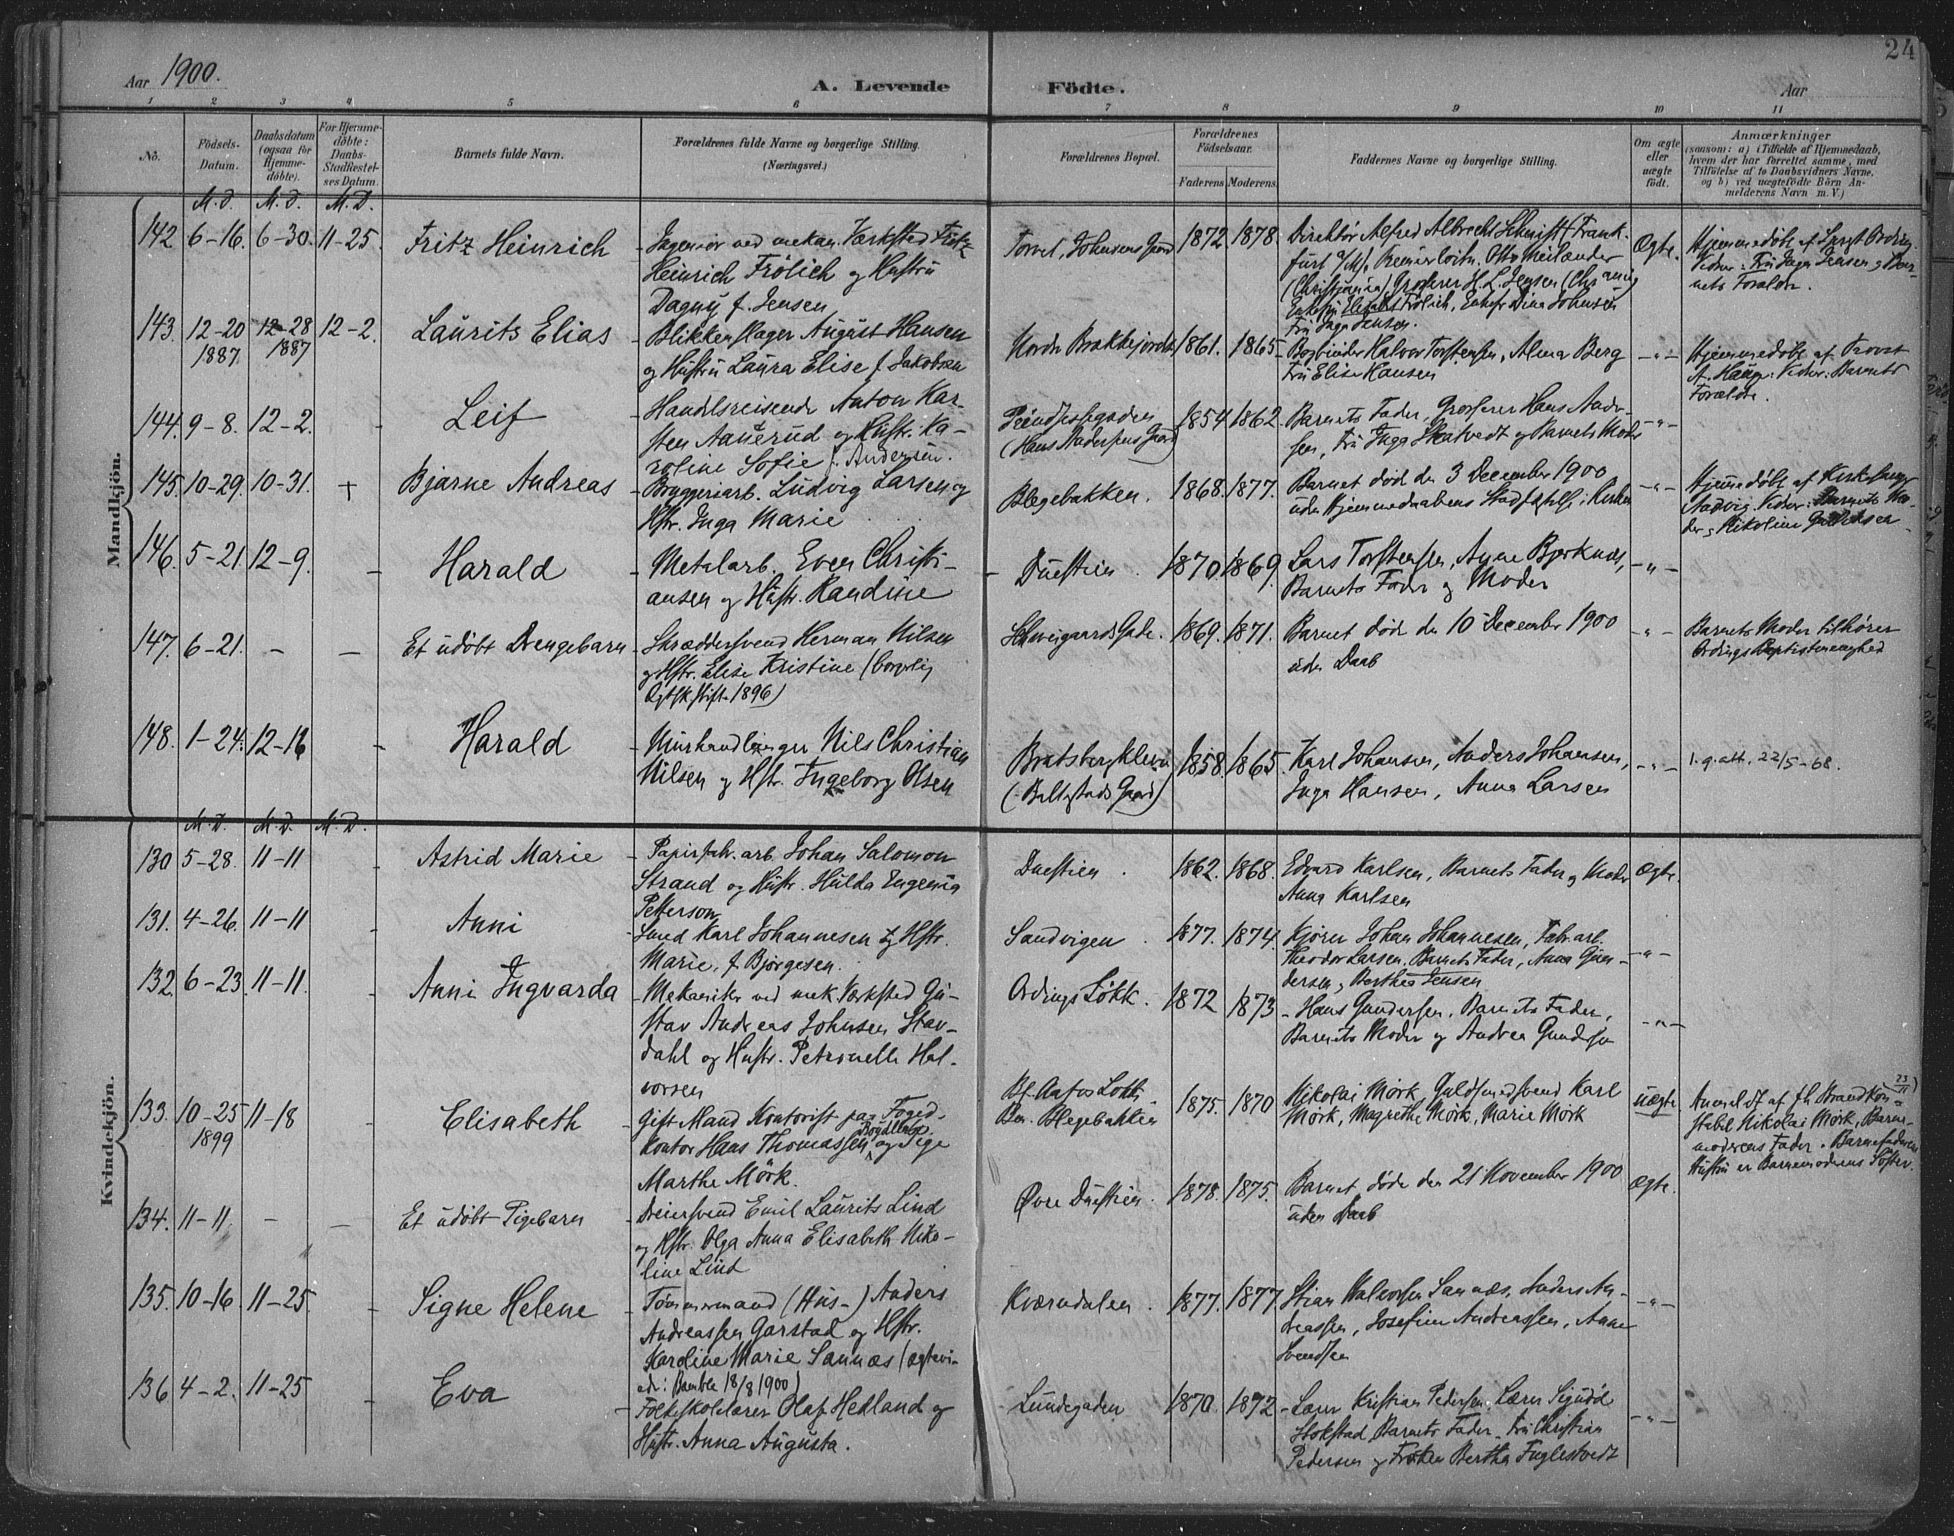 24
Aar 1900.
A. Levende Födte.
Aar
1 2 3 4 5 6 7 8 9 10 11
No.
Födsels-
Datum.
Daabsdatum
(ogsaa for
Hjemme-
döbte).
For Hjemme-
döbte:
Daabs-
Stadfæstel-
ses Datum.
Barnets fulde Navn.
Forældrenes fulde Navne og borgerlige Stilling.
(Næringsvei.)
Forældrenes Bopæl.
Forældrenes
Födselsaar.
Faderens. Moderens.
Faddernes Navne og borgerlige Stilling.
Om ægte
eller
uægte
födt.
Anmærkninger
(saasom: a) i Tilfælde af Hjemmedaab,
hvem der har forrettet samme, med
Tilföielse af to Daabsvidners Navne,
og b) ved uægtefödte Börn An-
melderens Navn m. V.)
Mandkjön.
M. D. M. D. M. D.
142 6-16. 6-30. 11-25. Fritz Heinrich
Ingeniør ved mekan. Værksted Fritz
Heinrich Frölich og Hustru
Dagny f. Jensen
Torvet, Johnsens Gaard 1872. 1878.
Direktör Alfred Albrecht Schmidt (Frank-
furt a/M), Premierløitn. Otto Meiländer
(Christiania), Grosserer H. L. Jensen
Frölich, Enkefr. Dina Johnsen
Fru Inga Jensen.
Ægte.
Hjemmedøbt af
Vidner: Fru Inga Jensen og Bar-
nets Forældre.
143. 12-20 12-28 12-2. Laurits Elias
1887 1887
Blikkenslager August Hansen
og Hustru Laura Elise f. Jakobsen
Nordre Brækkejordet 1861. 1865
Bogbinder Halvor Torstensen, Alma Berg
Fru Elise Hansen
-"-
Hjemmedøbt af Provst
A. Haug. Vidner: Barnets
Forældre.
144. 9-8. 12-2. - Leif
Handelsreisende Anton Kar-
sten Aanerud og Hustr. Ka-
roline Sofie f. Andersen.
(Hans Andersens Gaard) 1854 1862
Barnets Fader, Grosserer Hans Ander-
sen, Fru Inga Skatvedt og Barnets Moder
-"-
145. 10-29. 10-31. + Bjarne Andreas
Bryggeriarb. Ludvig Larsen og
Hstr. Inga Marie
Blegebakken. 1868. 1877.
Barnet død den 3 December 1900
uden Hjemmedaabens Stadfæstelse i Kirken
-"-
Hjemmedøbt af Kirkesanger
Vidner: Barnets Mo-
der og Nikoline Gulliksen
146. 5-21. 12-9. - Harald
Metalarb. Even Christi-
ansen og Hustr. Randine
Duestien. 1870. 1869.
Lars Torstensen, Anne Bjerknæs,
Barnets Fader og Moder
-"-
147. 6-21. - - Et udöbt Drengebarn
Skræddersvend Herman Nilsen
og Hstr. Elise Kristine (borgerlig
Ægtesk. stift. 1896)
Schweigaards Gade. 1869. 1871.
Barnet døde den 10 December 1900
uden Daab
-"-
Barnets Moder tilhører
Baptistmenighed
148. 1-24. 12-16 - Harald
Murhandlanger Nils Christian
Nilsen og Hstr. Ingeborg Olsen
Bratsbergkleven 1858. 1865.
Karl Johansen, Anders Johansen,
Inga Hansen, Anna Larsen
-"-
l. g. att. 22/5-68.
Kvindekjön.
M. D. M. D. M. D.
130 5-28. 11-11 - Astrid Marie
Papirfabr. arb. Johan Salomon
Strand og Hustr. Hulda Ingenia
Petterson
Duestien. 1862. 1868.
Edvard Karlsen, Barnets Fader og Moder
Anna Karlsen
Ægte.
131. 4-26. 11-11 - Anni
Smed Karl Johannesen og Hstr.
Marie, f. Bjørgesen.
Sandvigen. 1877. 1874.
Kjører Johan Johannesen, Fabr. arb.
Theodor Larsen, Barnets Fader, Anna Gun-
dersen, Berthea Jensen
-"-
132. 6-23. 11-11. - Anni Ingvarda
Mekaniker ved mek. Værksted Gu-
stav Andreas Johnsen Stav-
dahl og Hustr. Petronelle Hal-
vorsen
Løkk. 1872 1873
Hans Gundersen, Barnets Fader,
Barnets Moder og Andrea Gundersen
-"-
133. 10-25 11-18 - Elisabeth
1899
Gift Mand Kontorist paa Foged-
kontor Hans Thomassen og Pige
Marthe Mörk.
Bm. Blegebakken 1875. 1870
Nikolai Mörk, Guldsmedsvend Karl
Mörk, Magrethe Mörk, Marie Mörk
uægte
23/11
Anmeldt af fh. Strandkon-
stabel Nikolai Mörk, Barne-
moderens Fader. Barnefaderens
Hustru er Barnemoderens Søster.
134. 11-11 - - Et udöbt Pigebarn
Dreiersvend Emil Laurits Lind
og Hstr. Olga Anna Elisabeth Niko-
line Lind
Øvre Duestien. 1878. 1875.
Barnet døde den 21 November 1900
uden Daab
Ægte.
135. 10-16. 11-25. - Signe Helene
Tömmermand (Hus-) Anders
Andreassen Garstad og Hstr.
Karoline Marie Sannæs (ægtevi-
ede: Bamble 18/8 1900)
Kværndalen. 1877. 1877
Stian Halvorsen Sannæs, Anders An-
dreassen, Josefine Andreassen, Anne
Svendsen
-"-
136 4-2. 11-25 - Eva
Folkeskolelærer Olaf Hedland og
Hustr. Anna Augusta.
Lundegaden 1870. 1872
Lærer Kristian Pedersen, Lærer Sjursød
Stokstad, Barnets Fader, Fru Christian
Pedersen og Frøken Bertha Fuglestvedt
-"-